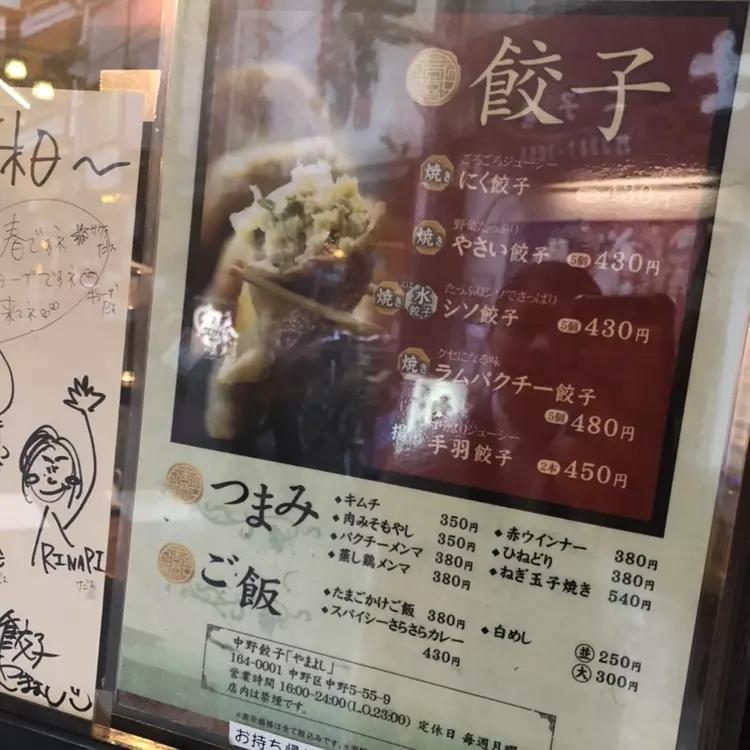 餃子
焼き ごろごろジューシー
にく餃子
430円
焼き 野菜たっぷり
やさい餃子 5個 430円
焼き 水餃子 たっぷりシソでさっぱり
シソ餃子 5個 430円
焼き クセになる味
ラムパクチー餃子
5個 480円
手羽餃子 2本 450円
つまみ
◆キムチ 350円
◆肉みそもやし 350円
◆パクチーメンマ 380円
◆蒸し鶏メンマ 380円
◆赤ウインナー 380円
◆ひねどり 380円
◆ねぎ玉子焼き 540円
ご飯
◆たまごかけご飯 380円
◆スパイシーさらさらカレー
430円
◆白めし 並 250円
大 300円
中野餃子「やまよし」
164-0001 中野区中野5-55-9
営業時間 16:00-24:00(L.O.23:00) 定休日 毎週月曜
店内は禁煙です。
※表示価格は全て税込みです。
お持ち帰
春ですネ
RINAPI
だよ
餃子